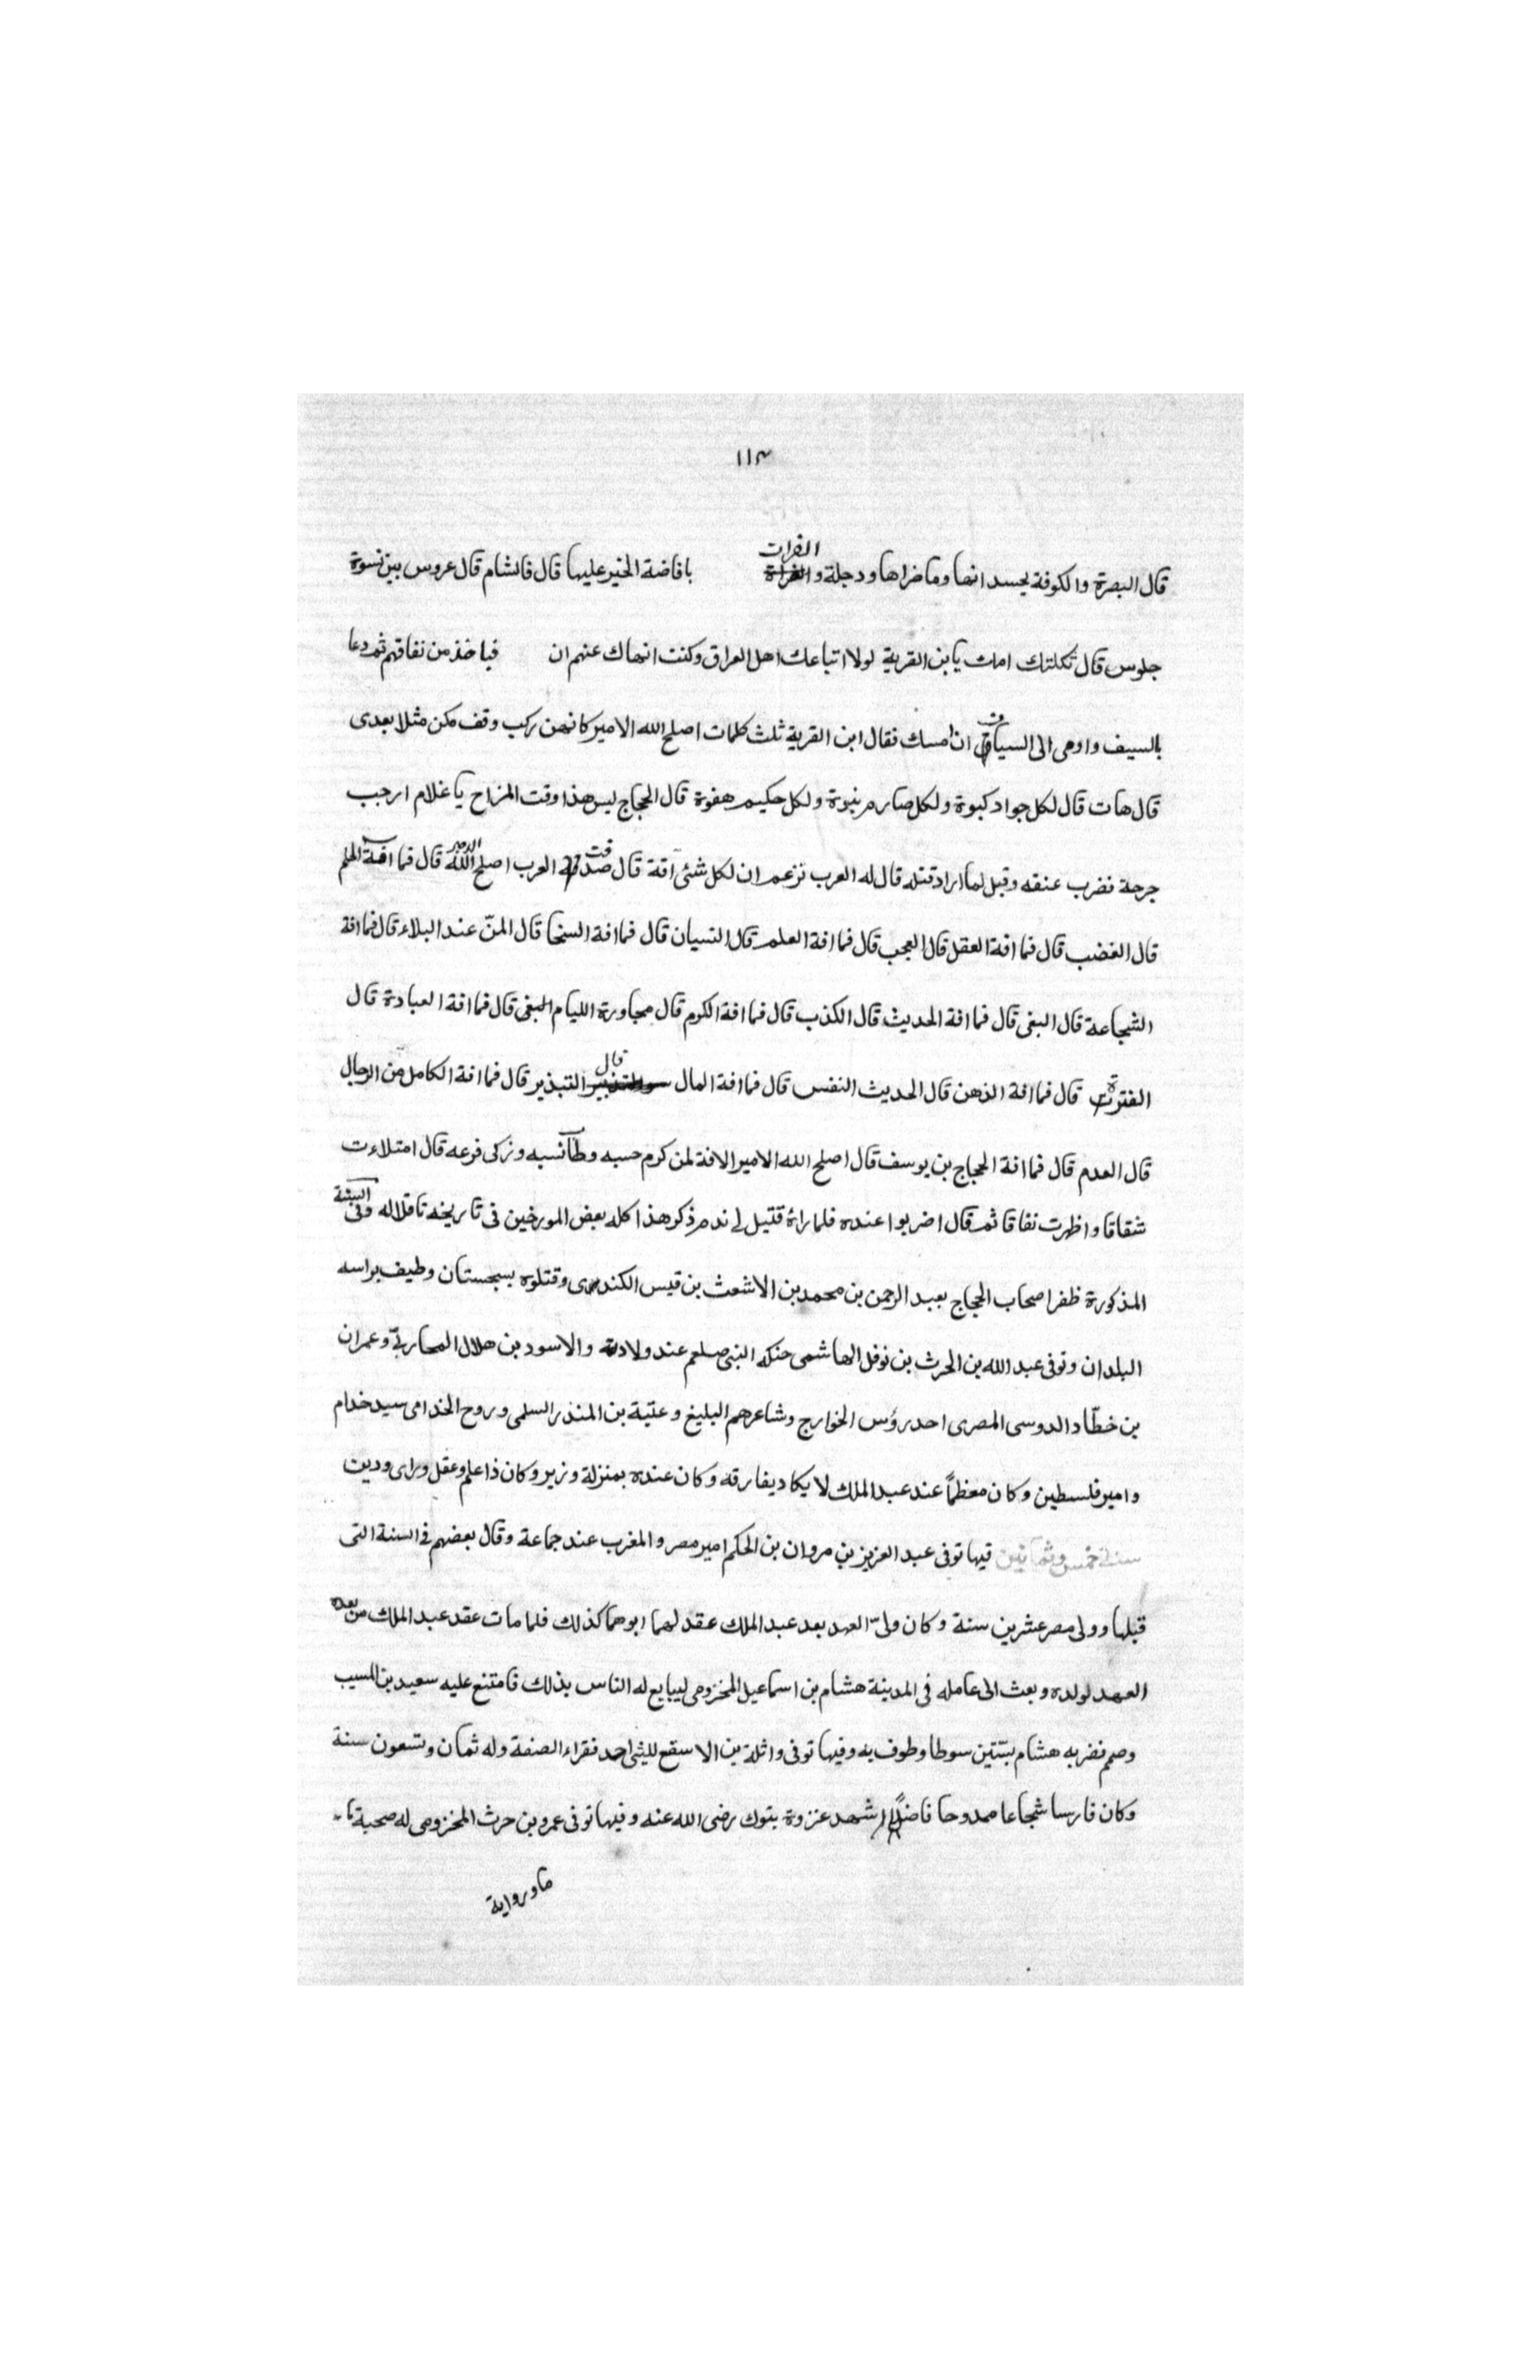 ١١٣
قال البصرة والكوفة يحسد انها وما ضراها ودجلة والفرات بافاضة الخير عليها قال فالشام قال عروس بين نسوة
جلوس قال ثكلتك امك يابن القرية لولا اتباعك اهل العراق وكنت انهاك عنهم ان فباخذ من نفاقهم ثم دعا
بالسيف واومى الى السياف ان امسك فقال ابن القرية ثلث كلمات اصلح الله الامير كانهن ركب وقف مكن مثلا بعدى
قال هات قال لكل جواد كبوة ولكل صارم نبوة ولكل حكيم هفوة قال الحجاج ليس هذا وقت المزاح يا غلام ارجب
جرحة فضرب عنقه وقيل لما اراد قتله قال له العرب تزعم ان لكل شئ آفة قال صدقت العرب اصلح الله الامير قال فما افة الحلم
قال الغضب قال فما افة العقل قال العجب قال فما افة العلم قال النسيان قال فما افة السخا قال المنّ عند البلاء قال فما افة
الشجاعة قال البغى قال فما افة الحديث قال الكذب قال فما افة الكرم قال مجاورة الليام البغى قال فما افة العبادة قال
الفترة قال فما افة الذهن قال الحديث النفس قال فما افة المال قال التبذير قال فما افة الكامل من الرجال
قال العدم قال فما افة الحجاج بن يوسف قال اصلح الله الامير لا افة لمن كرم حسبه وطآ نسبه وزكى فرعه قال امتلاءت
شقاقا واظهرت نفاقا ثم قال اضربوا عنده فلما راة قتيل ندم ذكر هذا كله بعض المورخين فى تاريخه ناقلا له وفى السنة
المذكورة ظفر اصحاب الحجاج بعبد الرحمن بن محمد بن الاشعث بن قيس الكندى وقتلوه بسجستان وطيف براسه
البلدان وتوفى عبد الله بن الحرث بن نوفل الهاشمى حنكه النبى صلعم عند ولادته والاسود بن هلال المحاربىّ وعمران
بن خطّاد الدوسى المصرى احد رؤس الخوارج وشاعرهم البليغ وعتبة بن المنذر السلمى وروح الخدامى سيد خدام
وامير فلسطين وكان معظماً عند عبد الملك لا يكاد يفارقه وكان عنده بمنزلة وزير وكان ذا علم وعقل وراى ودين
سنة خمس وثمانين فيها توفى عبد العزيز بن مروان بن الحكم امير مصر والمغرب عند جماعة وقال بعضهم فى السنة التى
قبلها وولى مصر عشرين سنة وكان ولىّ العهد بعد عبد الملك عقد لهما ابوهما كذلك فلما مات عقد عبد الملك من بعده
العهد لولده وبعث الى عامله فى المدينة هشام بن اسماعيل المخزومى ليبايع له الناس بذلك فامتنع عليه سعيد بن المسيب
وصمم فضربه هشام بستّين سوطا وطوف به وفيها توفى واثلة بن الاسقع لليثى احد فقراء الصفة وله ثمان وتسعون سنة
وكان فارسا شجاعا ممدوحا فاضلا شهد غزوة بتوك رضى الله عنه وفيها توفى عمرو بن حرث المخزومى له صحبة
ما ورواية